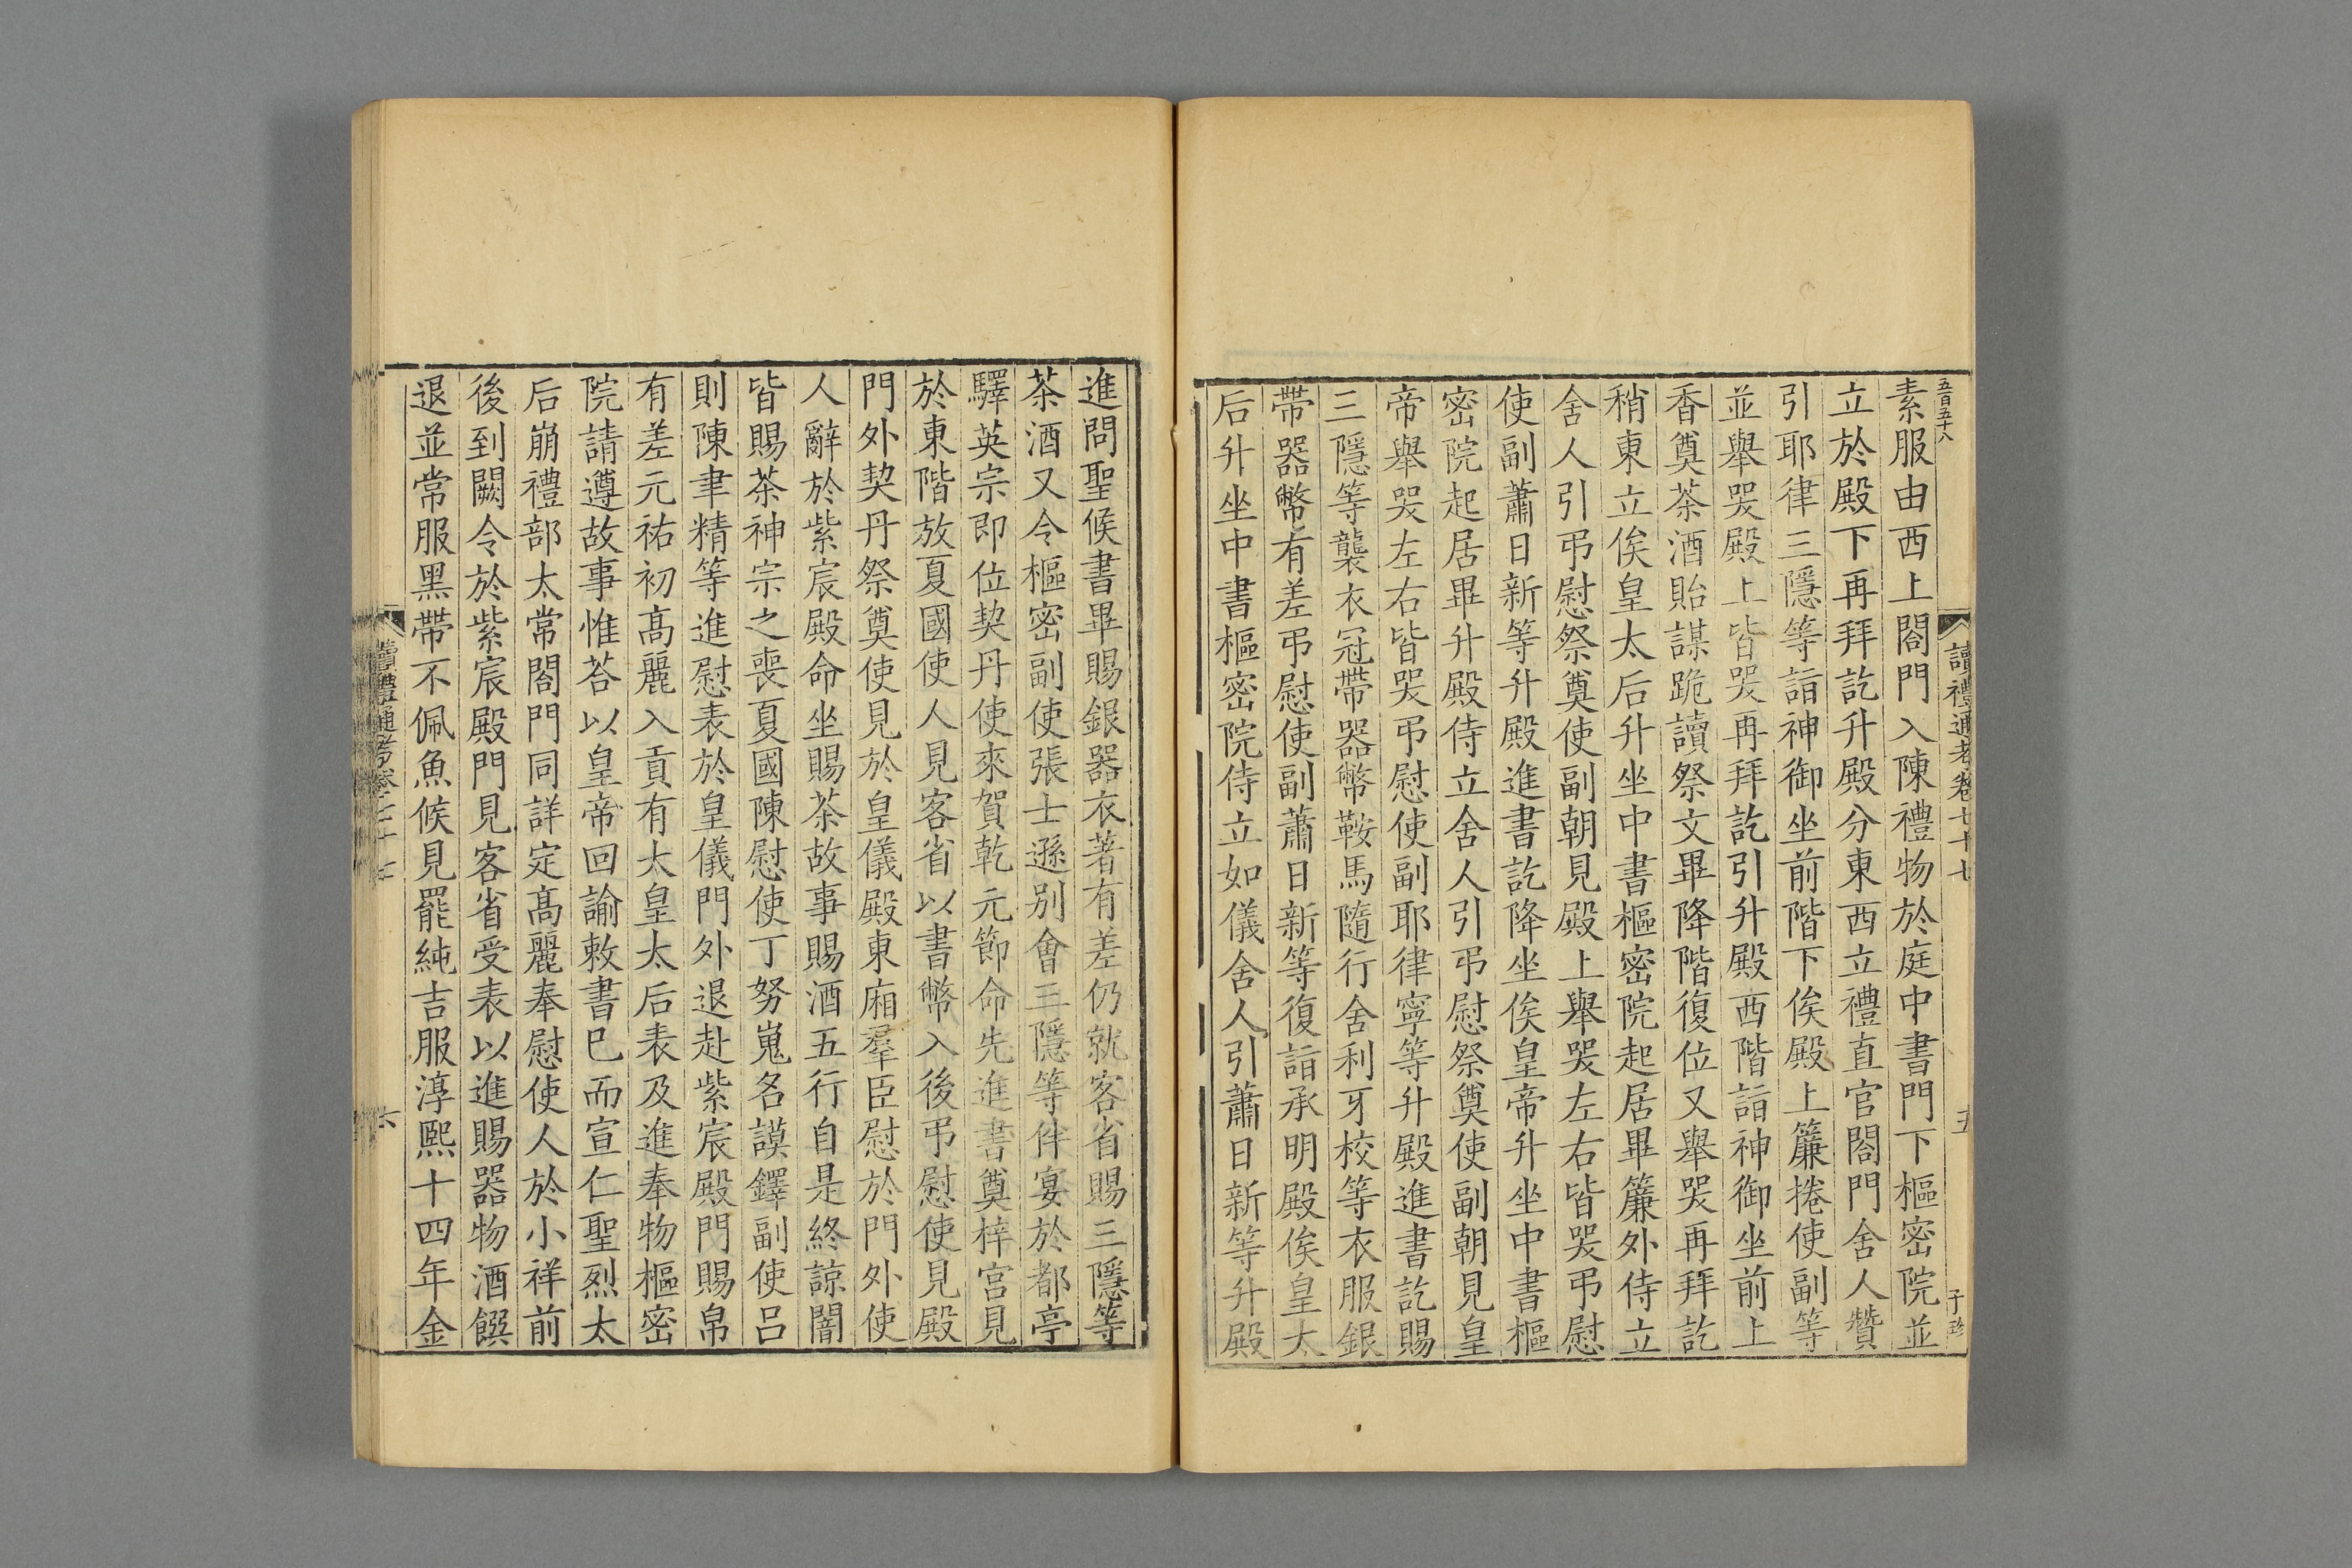 五百五十八
讀禮通考卷七十七
五
子珍
素服由西上閤門入陳禮物於庭中書門下樞密院並
立於殿下再拜訖升殿分東西立禮直官閤門舍人贊
引耶律三隱等詣神御坐前階下俟殿上簾捲使副等
並舉哭殿上皆哭再拜訖引升殿西階詣神御坐前上
香奠茶酒貽謀跪讀祭文畢降階復位又舉哭再拜訖
稍東立俟皇太后升坐中書樞密院起居畢簾外侍立
舍人引弔慰祭奠使副朝見殿上舉哭左右皆哭弔慰
使副蕭日新等升殿進書訖降坐俟皇帝升坐中書樞
密院起居畢升殿侍立舍人引弔慰祭奠使副朝見皇
帝舉哭左右皆哭弔慰使副耶律寧等升殿進書訖賜
三隱等襲衣冠帶器幣鞍馬隨行舍利牙校等衣服銀
帶器幣有差弔慰使副蕭日新等復詣承明殿俟皇太
后升坐中書樞密院侍立如儀舍人引蕭日新等升殿
進問聖候書畢賜銀器衣著有差仍就客省賜三隱等
茶酒又令樞密副使張士遜别會三隱等伴宴於都亭
驛英宗即位契丹使來賀乾元節命先進書奠梓宮見
於東階放夏國使人見客省以書幣入後弔慰使見殿
門外契丹祭奠使見於皇儀殿東廂羣臣慰於門外使
人辭於紫宸殿命坐賜茶故事賜酒五行自是終諒闇
皆賜茶神宗之喪夏國陳慰使丁努嵬名謨鐸副使呂
則陳聿精等進慰表於皇儀門外退赴紫宸殿門賜帛
有差元祐初高麗入貢有太皇太后表及進奉物樞密
院請遵故事惟荅以皇帝回諭敕書巳而宣仁聖烈太
后崩禮部太常閤門同詳定高麗奉慰使人於小祥前
後到闕令於紫宸殿門見客省受表以進賜器物酒饌
退並常服黑帶不佩魚候見罷純吉服淳熙十四年金
讀禮通考卷七十七
六